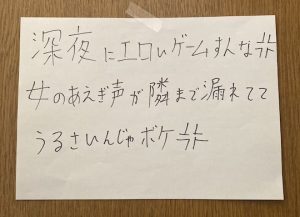 深夜にエロいゲームすんな
女のあえぎ声が隣まで漏れてて
うるさいんじゃボケ